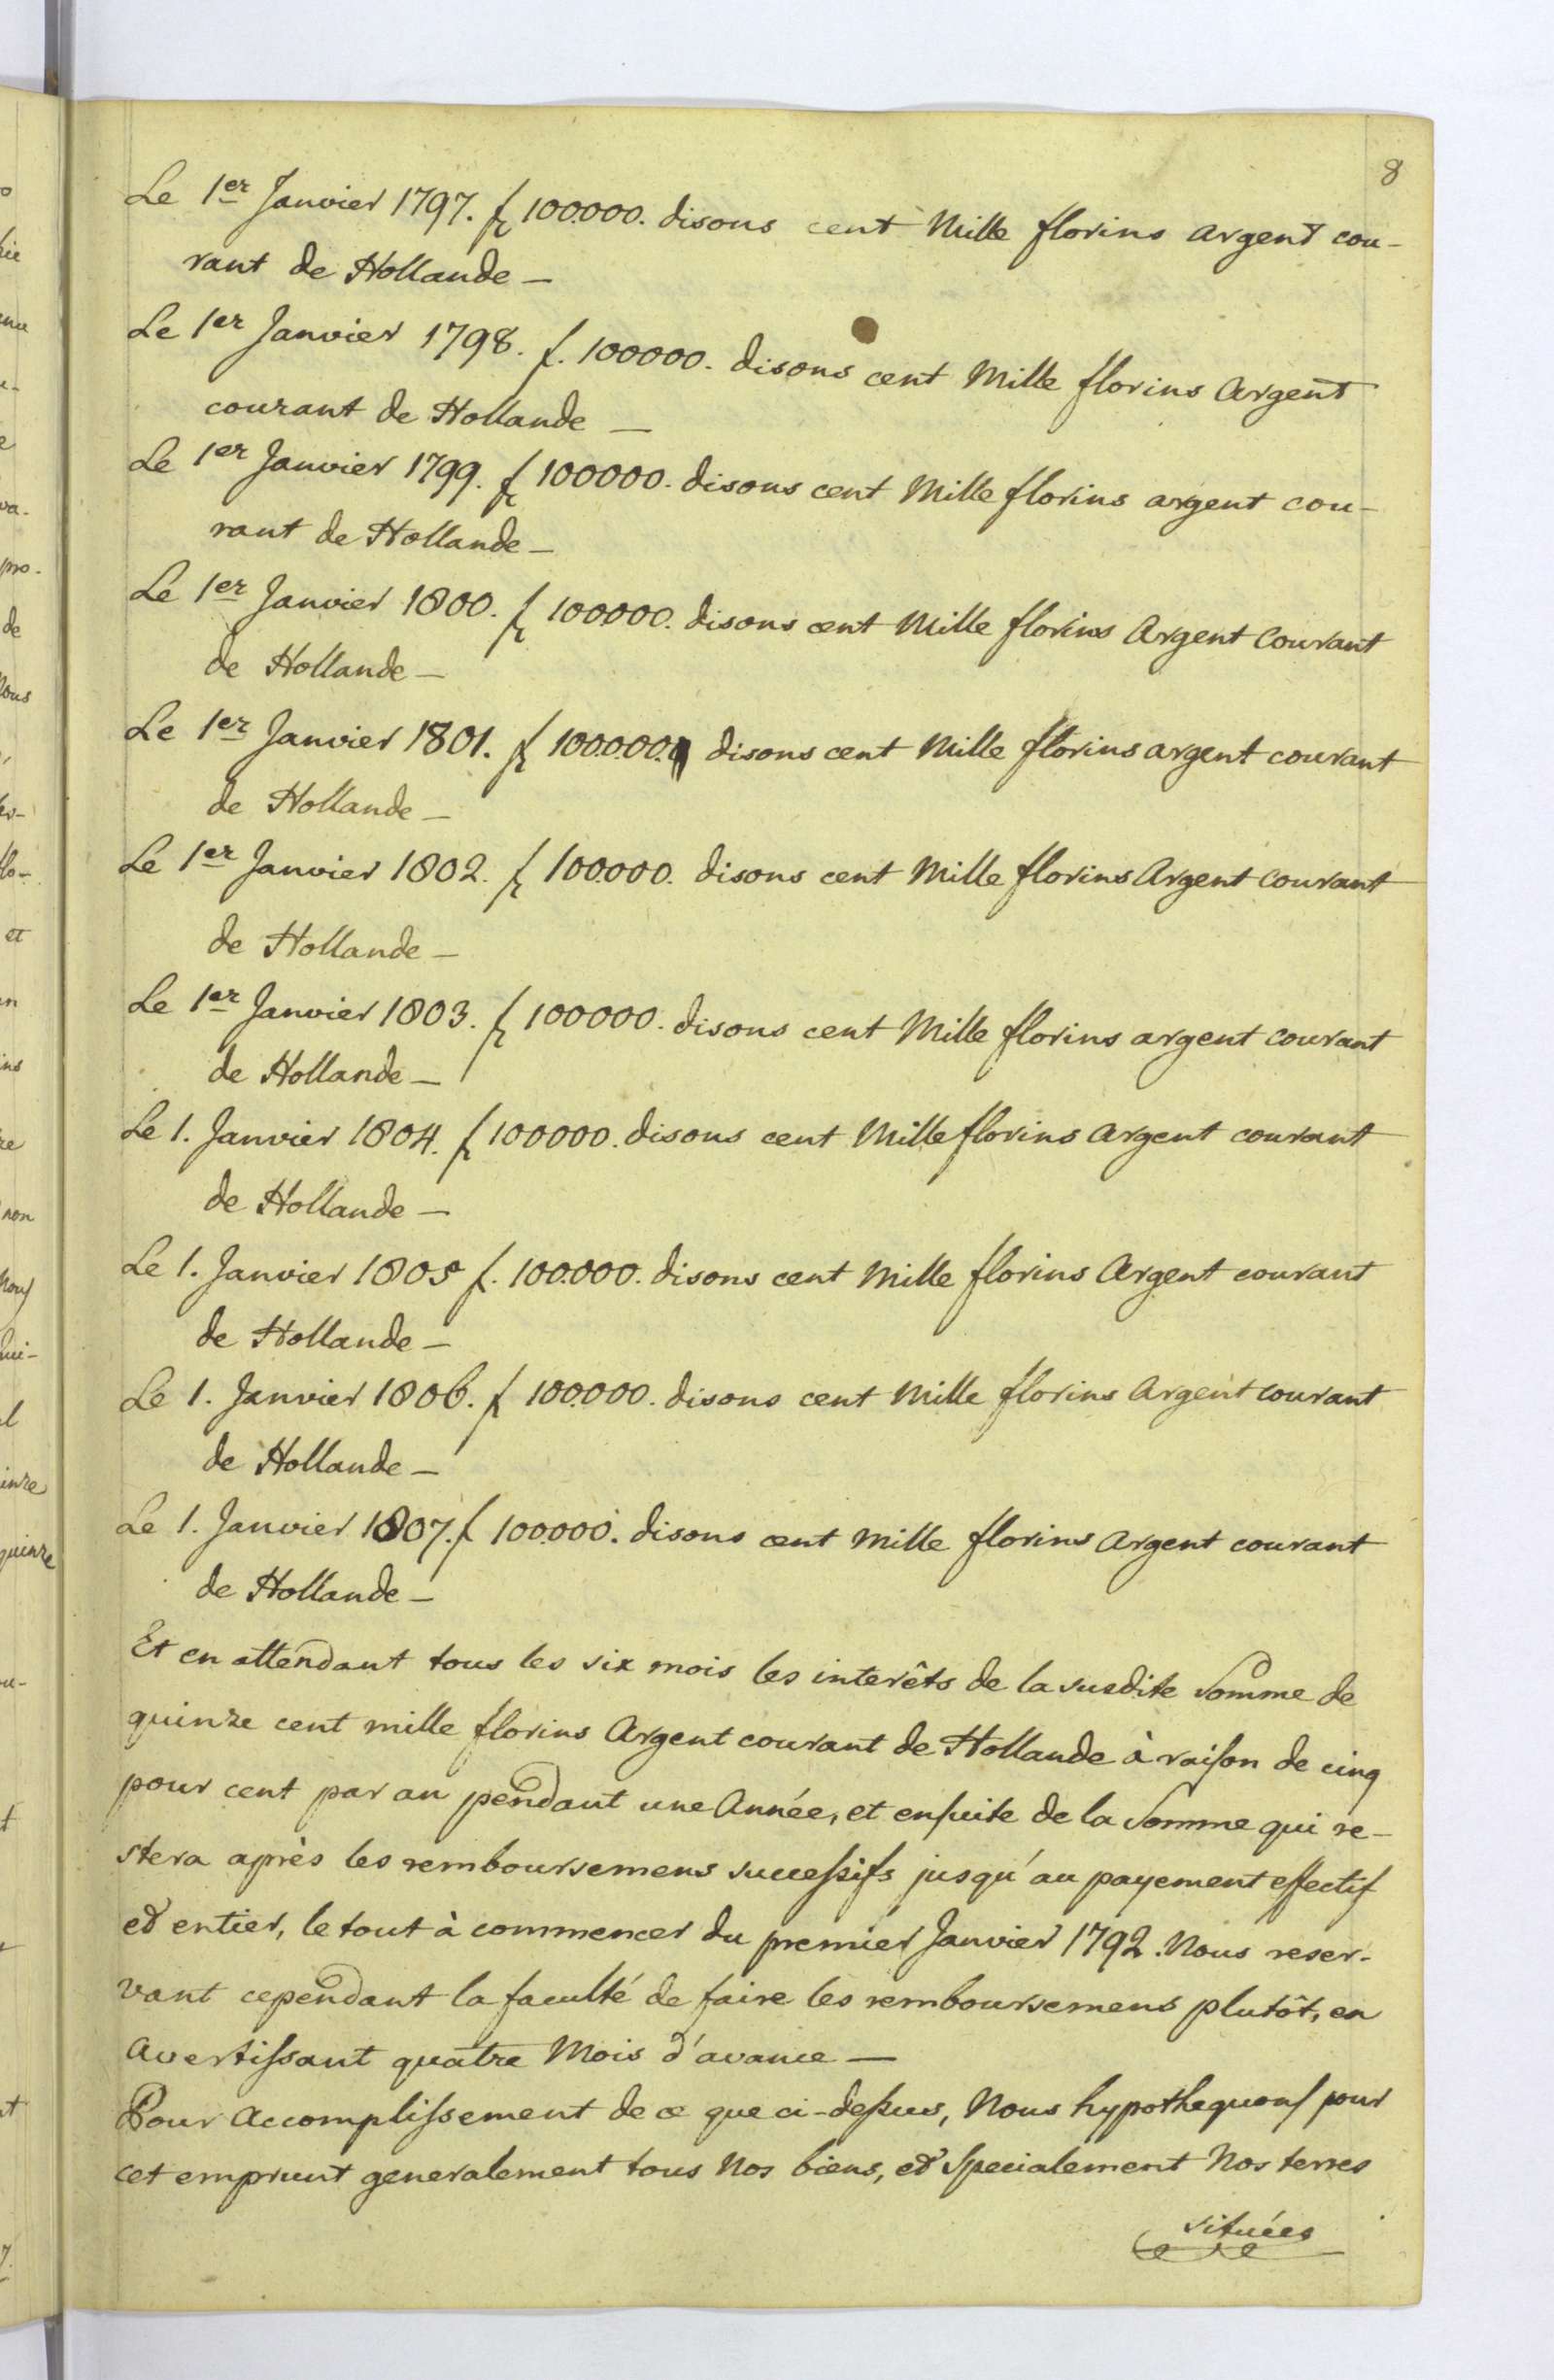 8
Le 1er Janvier 1797. f 100.000. disons cent Mille florins argent cou-
rant de Hollande —
Le 1er Janvier 1798. f. 100000. disons cent Mille florins Argent
courant de Hollande —
Le 1er Janvier 1799. f 100000. disons cent Mille florins argent cou-
rant de Hollande —
Le 1er Janvier 1800. f 100.000. disons cent Mille florins Argent Courant
de Hollande —
Le 1er Janvier 1801. f 100.000. disons cent Mille florins argent courant
de Hollande —
Le 1er Janvier 1802. f 100.000. disons cent Mille florins Argent Courant
de Hollande —
Le 1er Janvier 1803. f 100000. disons cent Mille florins argent courant
de Hollande —
Le 1. Janvier 1804. f 100000. disons cent Mille florins Argent courant
de Hollande —
Le 1. Janvier 1805 f. 100.000. disons cent Mille florins Argent courant
de Hollande —
Le 1. Janvier 1806. f 100.000. disons cent Mille florins Argent courant
de Hollande —
Le 1. Janvier 1807. f 100.000. disons cent Mille florins Argent courant
de Hollande —
Et en attendant tous les six mois les interêts de la susdite Somme de
quinze cent mille florins Argent courant de Hollande à raiſon de cinq
pour cent par an pendant une Année, et enſuite de la Somme qui re-
stera après les remboursemens succeſsifs jusqu'au payement effectif
et entier, le tout à commencer du premier Janvier 1792. Nous reser-
vant cependant la faculté de faire les remboursemens plutôt, en
Avertiſsant quatre Mois d'avance —
Pour Accompliſsement de ce que ci-deſsus, Nous hypothequons pour
cet emprunt generalement tous Nos biens, et Specialement Nos terres
situées